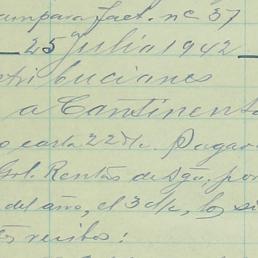 ampara fact. nº 57
25 Julio 1942
tribuciones
a Continenta
o carta 22 d/c. Pagar
Grl. Rentas de Sgo, por
del año, el 3 d/c, los si
tes recibos: